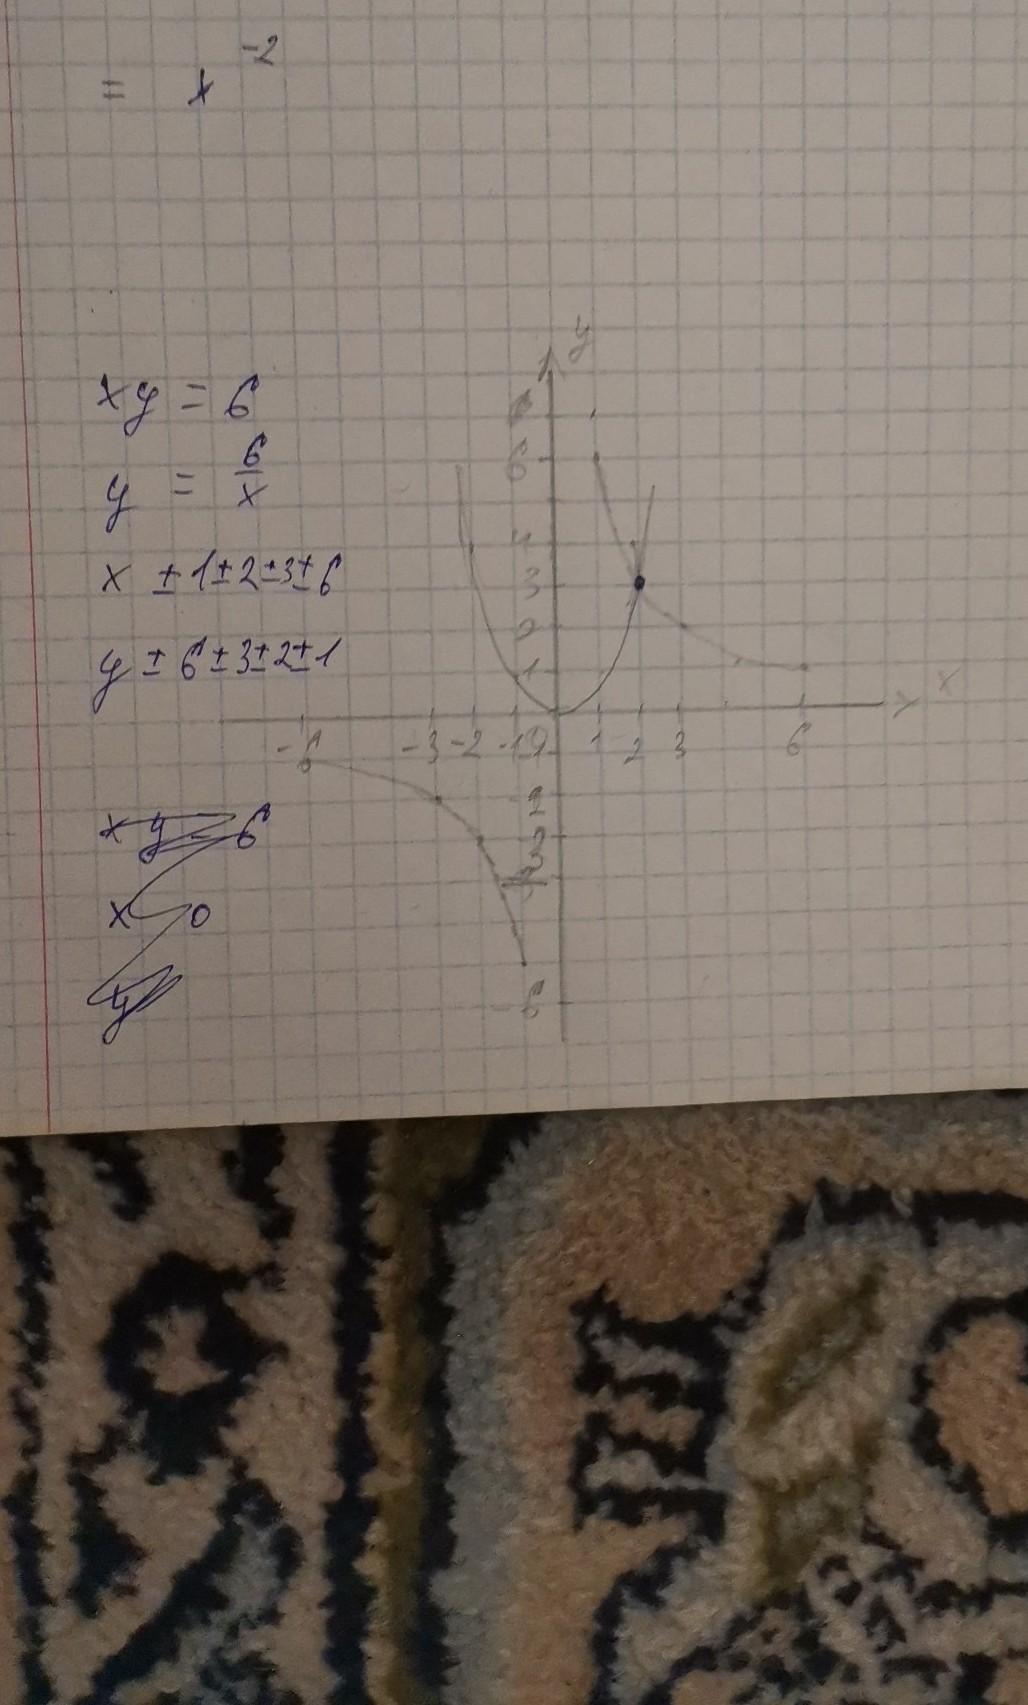 = x⁻²
xy = 6
y = 6/x
x ±1±2±3±6
y ±6±3±2±1
xy = 6
x 0
y
y
6
4
3
2
1
-6 -3 -2 -1 0 1 2 3 6 x
-2
-6